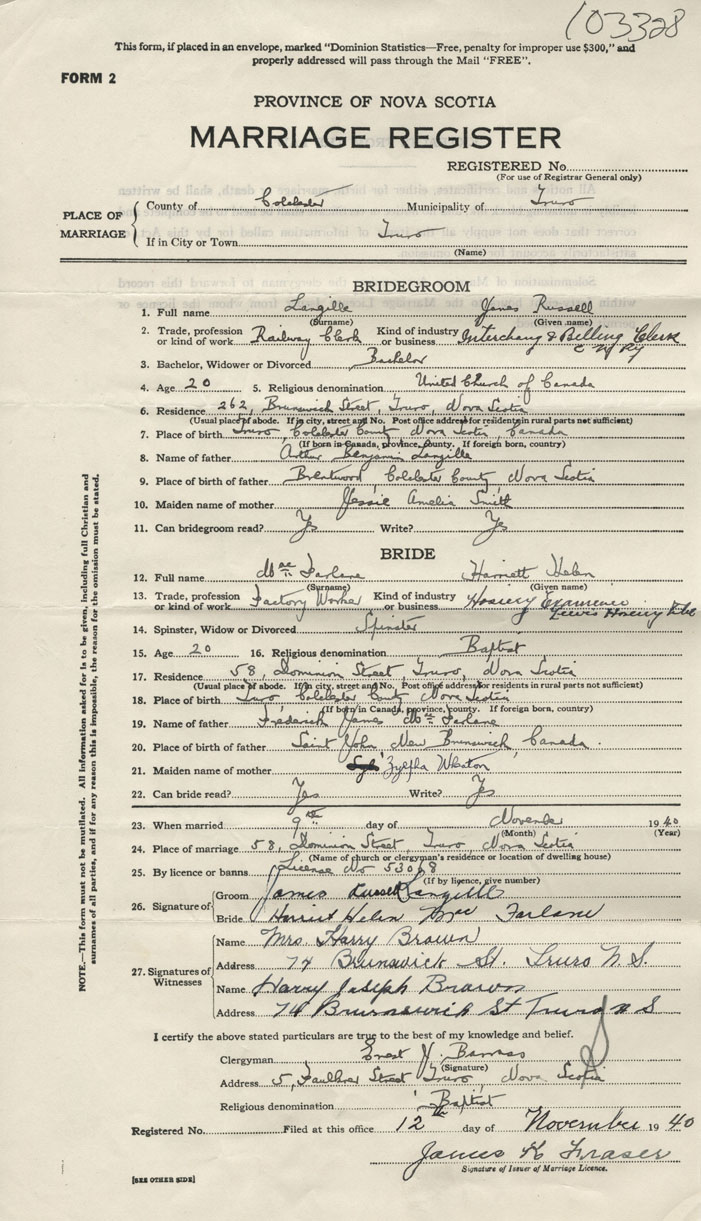 103328
This form, if placed in an envelope, marked "Dominion Statistics—Free, penalty for improper use $300," and
properly addressed will pass through the Mail "FREE".
FORM 2
PROVINCE OF NOVA SCOTIA
MARRIAGE REGISTER
REGISTERED No.
(For use of Registrar General only)
PLACE OF MARRIAGE
County of Colchester Municipality of Truro
If in City or Town Truro
(Name)
BRIDEGROOM
1. Full name Langille James Russell
(Surname) (Given name)
2. Trade, profession or kind of work Railway Clerk Kind of industry or business Interchang & Billing Clerk
C N Ry
3. Bachelor, Widower or Divorced Bachelor
4. Age 20 5. Religious denomination United Church of Canada
6. Residence 262, Brunswick Street, Truro, Nova Scotia
(Usual place of abode. If in city, street and No. Post office address for residents in rural parts not sufficient)
7. Place of birth Truro, Colchester County Nova Scotia, Canada
(If born in Canada, province, county. If foreign born, country)
8. Name of father Arthur Benjamin Langille
9. Place of birth of father Brentwood Colchester County Nova Scotia
10. Maiden name of mother Jessie Amelia Smith
11. Can bridegroom read? Yes Write? Yes
BRIDE
12. Full name MacFarlane Harriett Helen
(Surname) (Given name)
13. Trade, profession or kind of work Factory Worker Kind of industry or business Hosiery Examiner
Lewis Hosiery
14. Spinster, Widow or Divorced Spinster
15. Age 20 16. Religious denomination Baptist
17. Residence 58, Dominion Street, Truro, Nova Scotia
(Usual place of abode. If in city, street and No. Post office address for residents in rural parts not sufficient)
18. Place of birth Truro Colchester County Nova Scotia
(If born in Canada, province, county. If foreign born, country)
19. Name of father Frederick James MacFarlane
20. Place of birth of father Saint John, New Brunswick, Canada.
21. Maiden name of mother Zylpha Wheaton
22. Can bride read? Yes Write? Yes
23. When married 9th day of November 1940
(Month) (Year)
24. Place of marriage 58, Dominion Street, Truro, Nova Scotia
(Name of church or clergyman's residence or location of dwelling house)
25. By licence or banns License No 53068
(If by licence, give number)
26. Signature of
Groom James Russell Langille
Bride Harriet Helen MacFarlane
27. Signatures of Witnesses
Name Mrs. Harry Brown
Address 74 Brunswick St. Truro N.S.
Name Harry Joseph Brown
Address 74 Brunswick St Truro N S
I certify the above stated particulars are true to the best of my knowledge and belief.
Clergyman Ernest
(Signature)
Address 5, Faulkner Street Truro, Nova Scotia
Religious denomination Baptist
Registered No. Filed at this office 12th day of November 1940
James K Fraser
Signature of Issuer of Marriage Licence.
[SEE OTHER SIDE]
NOTE.—This form must not be mutilated. All information asked for is to be given, including full Christian and
surnames of all parties, and if for any reason this is impossible, the reason for the omission must be stated.